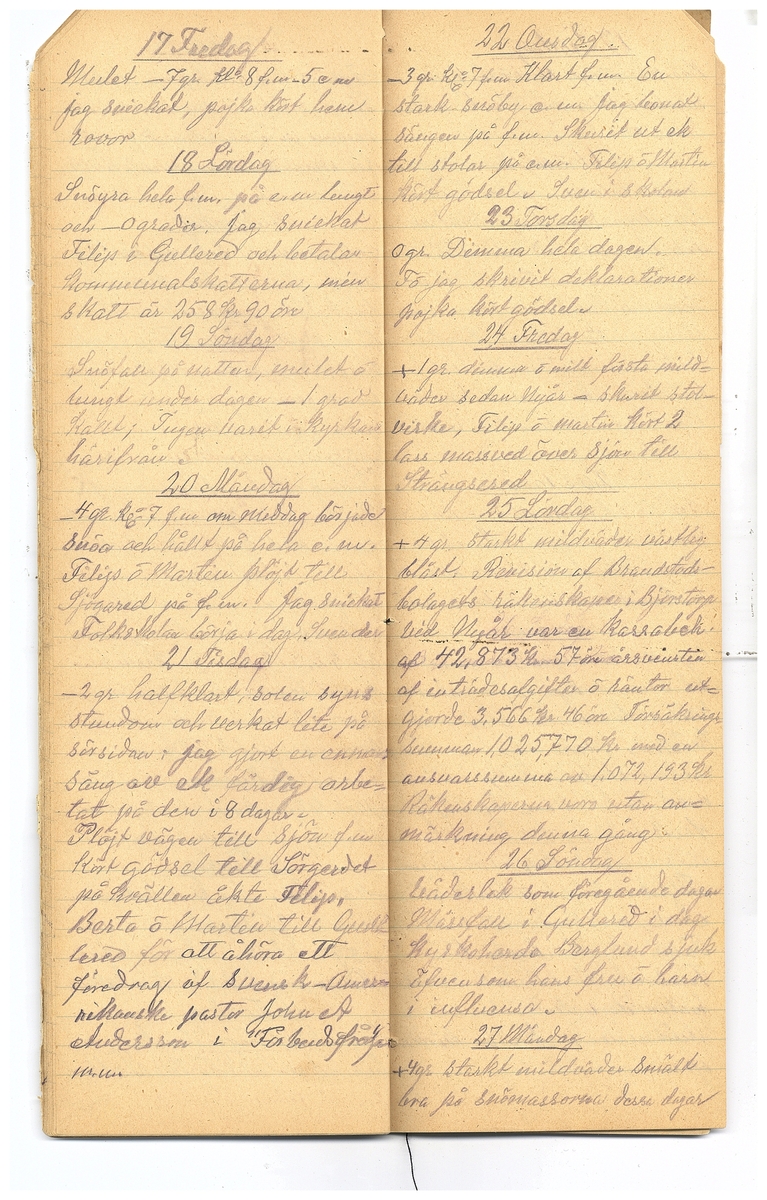 17 Fredag
Mulet -7gr. kl. 8 f.m. -5 e m
jag snickat, pojka kört hem
rovor
18 Lördag
Snöyra hela f.m. på e.m lungt
och -0 grader. Jag snickat
Filip i Gullered och betalar
kommunalskatterna, min
skatt är 258 kr 90 öre
19 Söndag
Snöfall på natten, mulet ö
lungt under dagen - 1 grad
kallt; Ingen varit i kyrkan
härifrån.
20 Måndag
-4 gr. kl. 7 f.m om middag började
snöa och hållt på hela e.m.
Filip ö Martin plöjt till
Sjögared på f.m. Jag snickat
Folkskolan börja i dag, Sven der
21 Tisdag
-2 gr halfklart, solen syns
stundom och verkat lite på
sörsidan; jag gjort en annan
säng av ek färdig arbe=
tat på den i 8 dagar.
Plöjt vägen till sjön f.m
kört gödsel till Sörgerdet
på kvällen åkte Filip,
Berta ö Martin till Gull=
lered för att åhöra ett
föredrag af Svensk-Ameri=
rikanske pastor John A
Andersson i "Förbudsfrågan
m.m.
22 Onsdag.
-3 gr. kl. 7 f.m Klart f.m. En
stark snöby e.m. Jag bonat
sängen på f.m. Skurit ut ek
till stolar på e.m. Filip ö Martin
kört gödsel. Sven i skolan
23 Torsdag
0 gr. Dimma hela dagen.
jag skrivit deklarationer
pojka kört gödsel.
24 Fredag
+1 gr. dimma ö milt första mild=
väder sedan Nyår - skurit stol=
virke, Filip ö Martin kört 2
lass massved över sjön till
Strängsered
25 Lördag
+4 gr. starkt mildväder västlig
blåst. Revision af Brandstods=
bolagets räkenskaper i Bjärstorp
ved Nyår var en kassabeh.
af 42,873 kr. 57 öre årsvinsten
af inträdesafgifter ö räntor ut=
gjorde 3,566 kr 46 öre Försäkrings
summan 1,025,770 kr med en
ansvarssumma av 1,072,193 kr
Räkenskaperna voro utan an=
märkning denna gång.
26 Söndag
Väderlek som föregående dagar
Mässfall i Gullered i dag
Kyrkoherde Berglund sjuk
äfven som hans fru ö barn
i influensa.
27 Måndag
+4gr starkt mildväder smält
bra på snömassorna dessa dagar